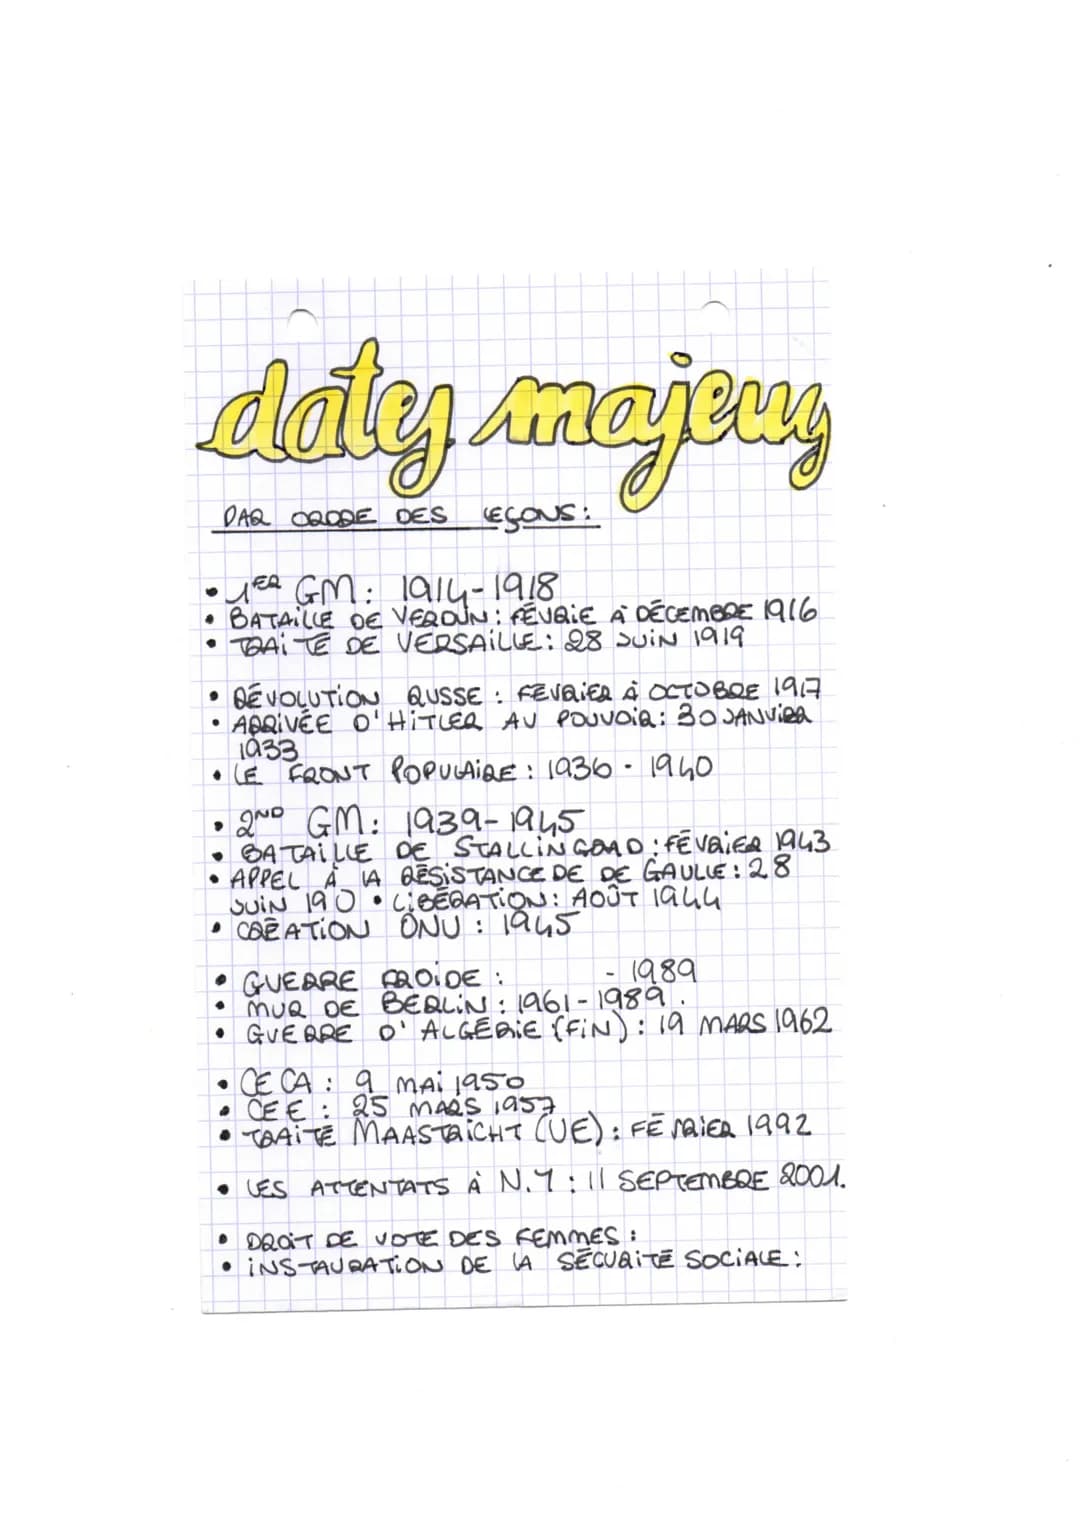 dates majeurs
PAR ORDRE DES LEÇONS:
• 1ER GM: 1914-1918
• BATAILLE DE VERDUN: FÉVRIE À DÉCEMBRE 1916
• TRAITÉ DE VERSAILLE: 28 JUIN 1919
• RÉVOLUTION RUSSE: FEVRIER À OCTOBRE 1917
• ARRIVÉE D'HITLER AU POUVOIR: 30 JANVIER
1933
• LE FRONT POPULAIRE: 1936-1940
• 2ND GM: 1939-1945
• BATAILLE DE STALLINGRAD: FÉVRIER 1943
• APPEL À LA RÉSISTANCE DE DE GAULLE: 28
JUIN 190 • LIBÉRATION: AOÛT 1944
• CRÉATION ONU: 1945
• GUERRE FROIDE: - 1989
• MUR DE BERLIN: 1961-1989.
• GUERRE D'ALGÉRIE (FIN): 19 MARS 1962
• CECA: 9 MAI 1950
• CEE: 25 MARS 1957
• TRAITÉ MAASTRICHT (UE): FÉVRIER 1992
• LES ATTENTATS À N.Y: 11 SEPTEMBRE 2001.
• DROIT DE VOTE DES FEMMES:
• INSTAURATION DE LA SÉCURITÉ SOCIALE: